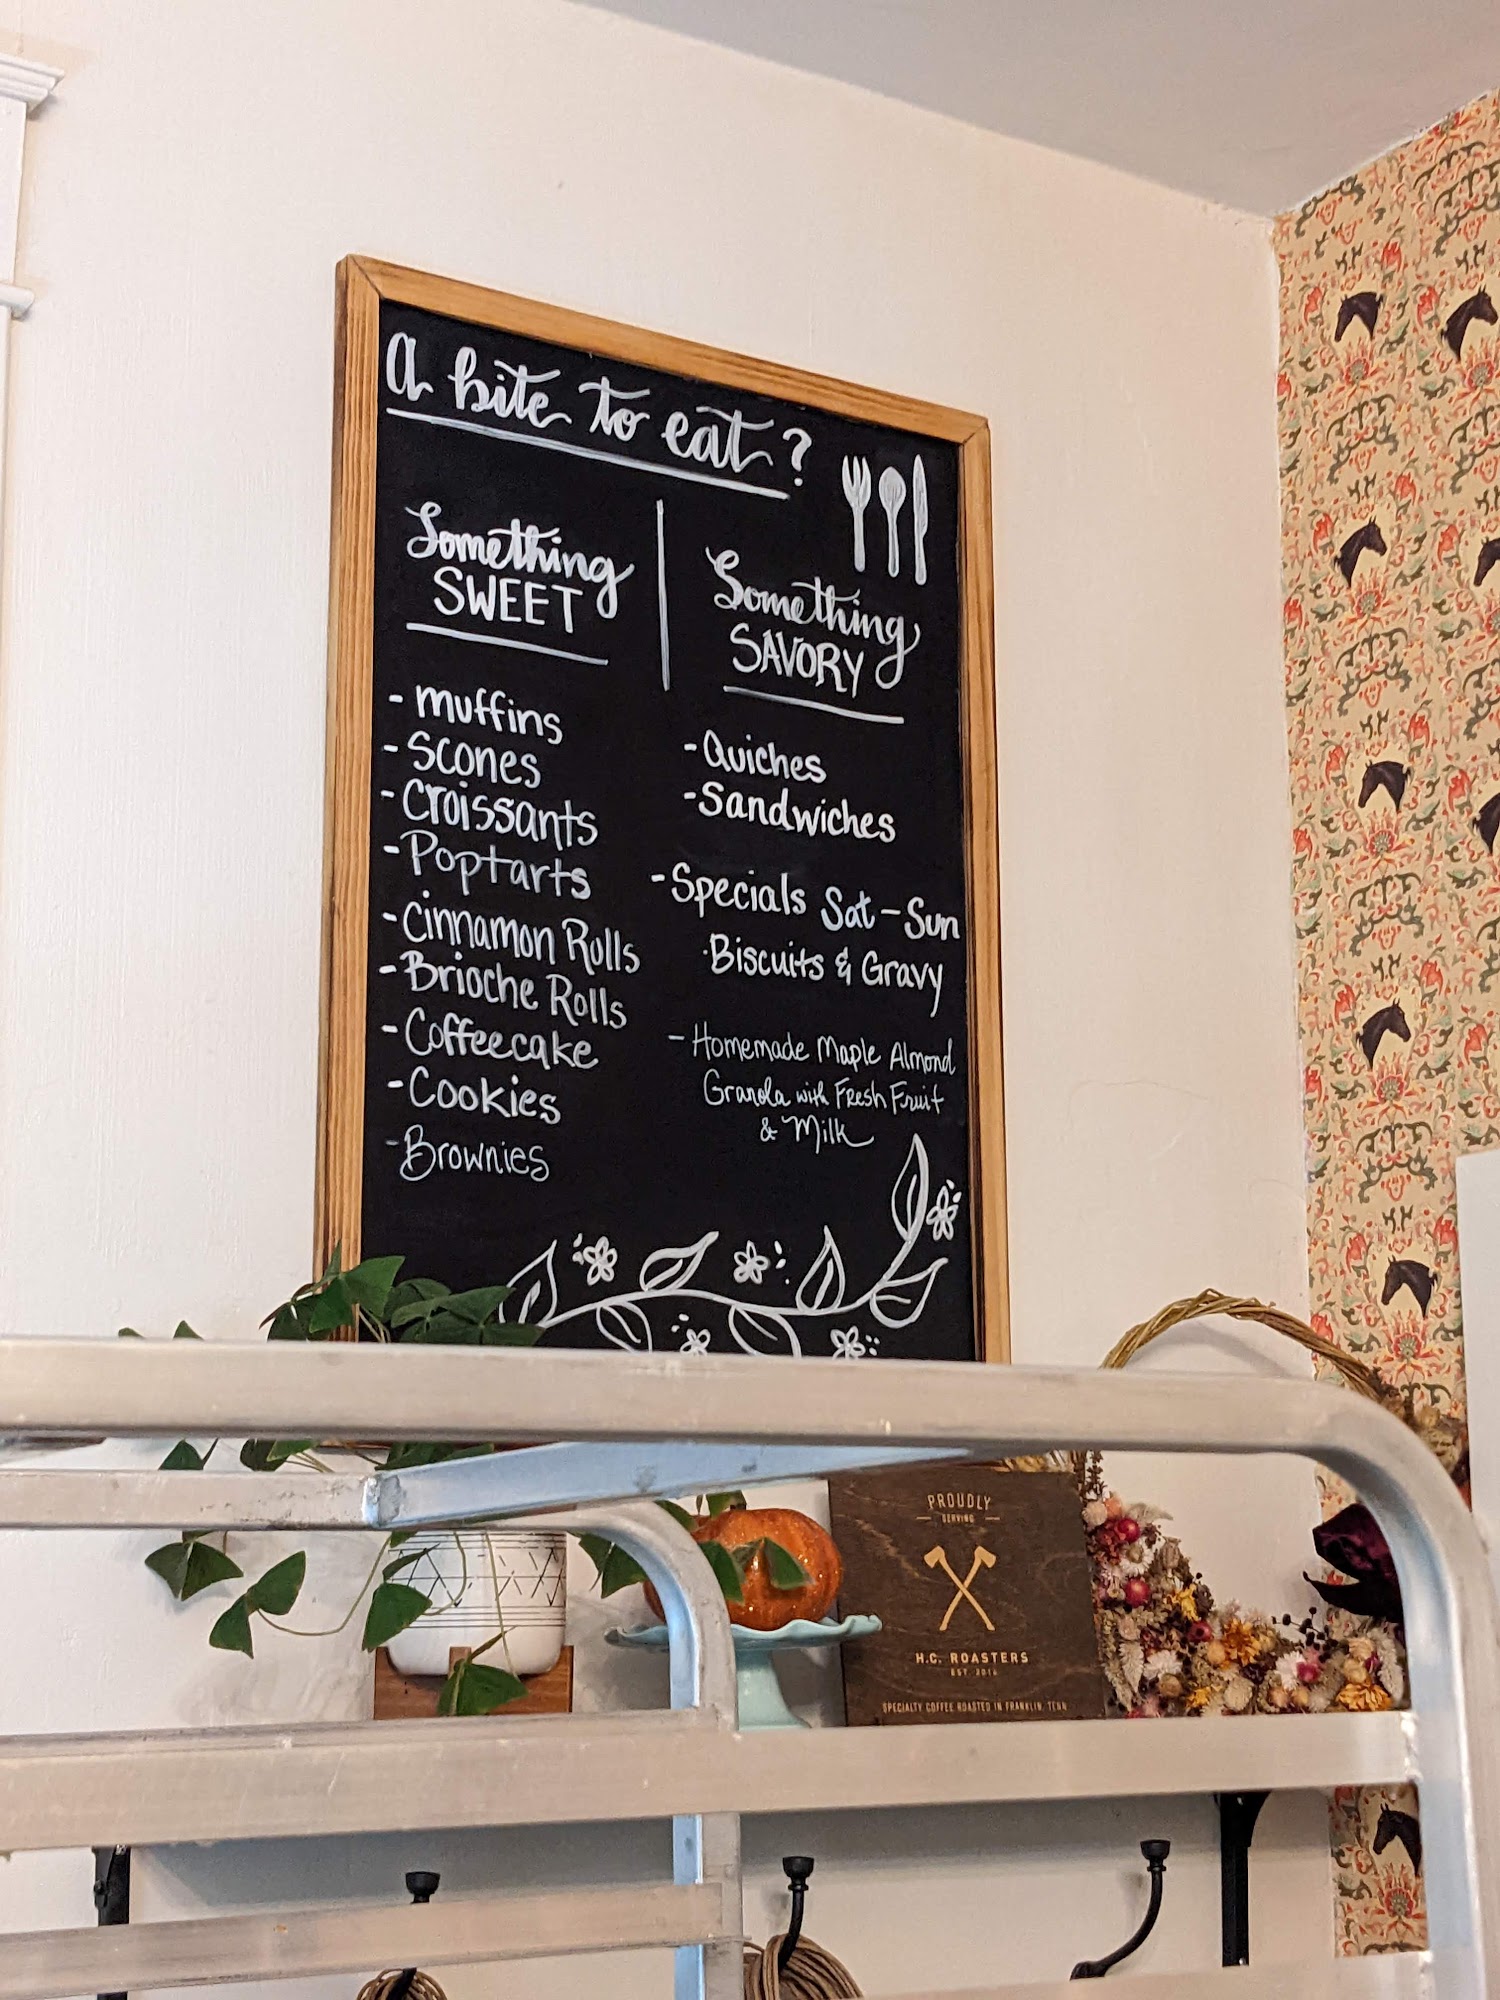 A bite to eat?
Something
SWEET
- muffins
- Scones
- Croissants
- Poptarts
- Cinnamon Rolls
- Brioche Rolls
- Coffeecake
- Cookies
- Brownies
Something
SAVORY
- Quiches
- Sandwiches
- Specials Sat - Sun
· Biscuits & Gravy
- Homemade Maple Almond
Granola with Fresh Fruit
& Milk
PROUDLY
SERVING
H.C. ROASTERS
EST. 2016
SPECIALTY COFFEE ROASTED IN FRANKLIN, TENN